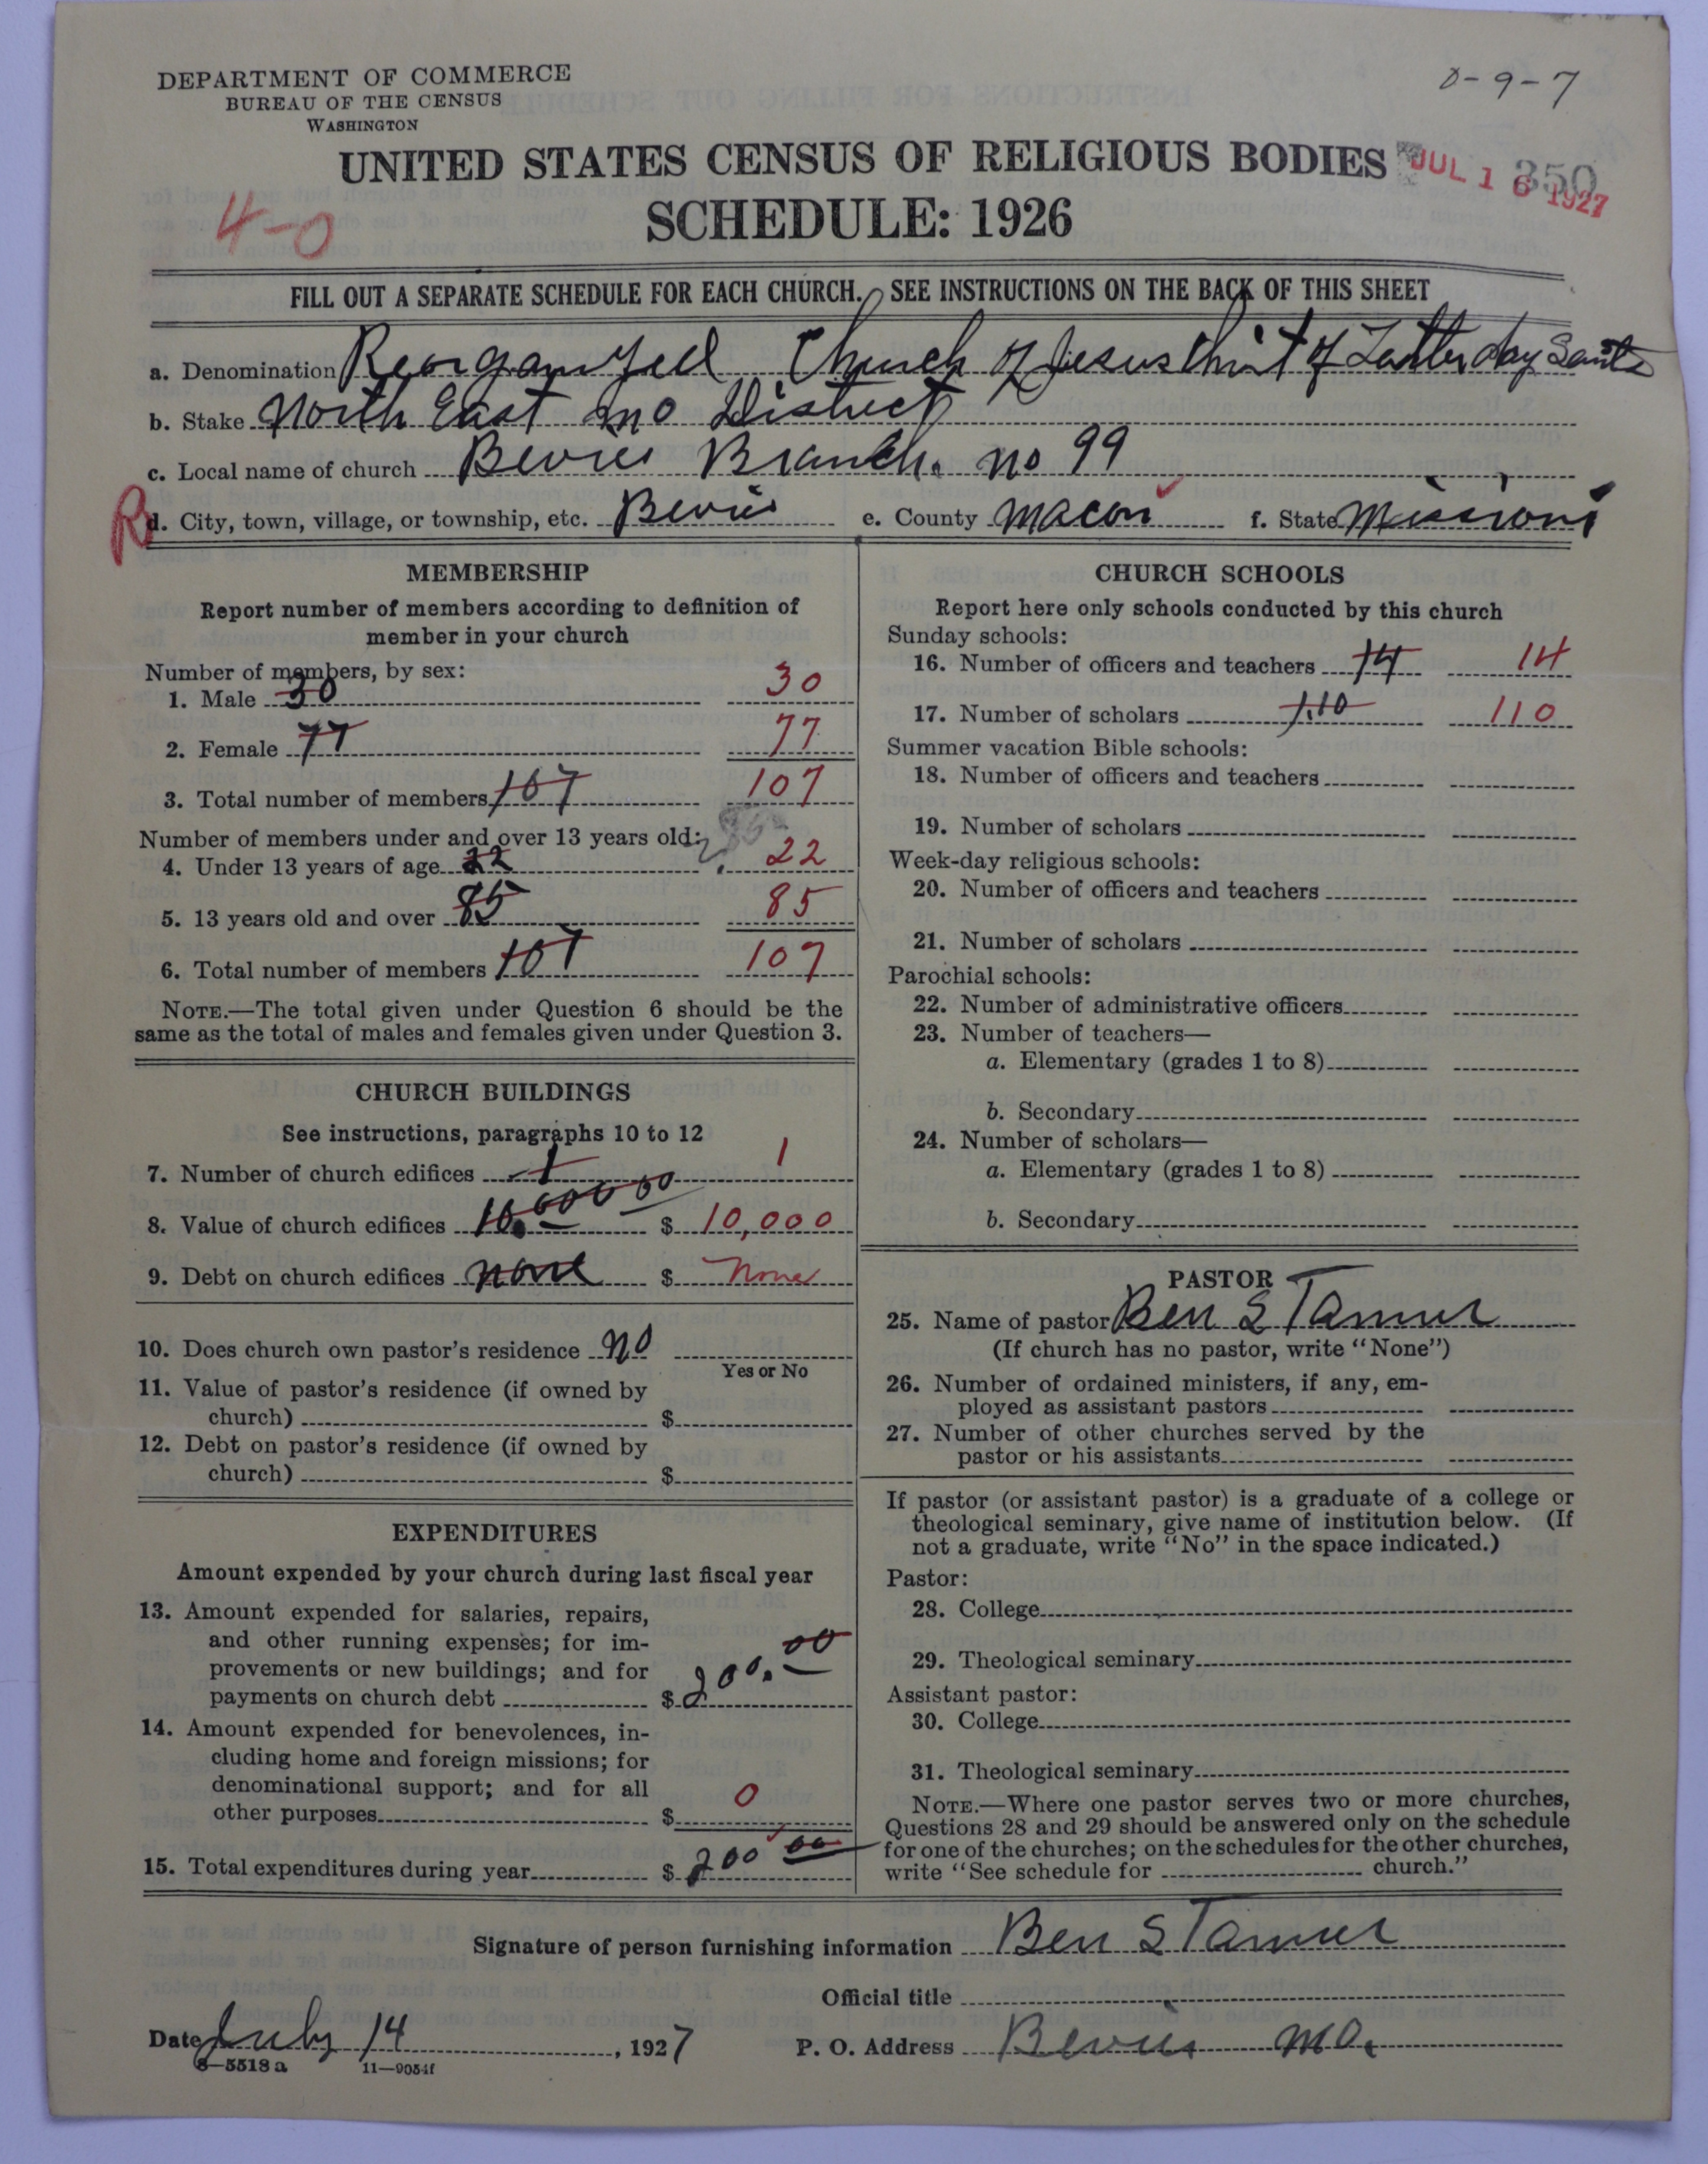 DEPARTMENT OF COMMERCE
BUREAU OF THE CENSUS
WASHINGTON
8-9-7
UNITED STATES CENSUS OF RELIGIOUS BODIES
SCHEDULE: 1926
JUL 16 1927
350
4-0
FILL OUT A SEPARATE SCHEDULE FOR EACH CHURCH. SEE INSTRUCTIONS ON THE BACK OF THIS SHEET
a. Denomination Reorganized Church of Jesus Christ of Latter day Saints
b. Stake North East Mo District
c. Local name of church Bevier Branch. No 99
R
d. City, town, village, or township, etc. Bevier e. County Macon f. State Missouri
MEMBERSHIP
Report number of members according to definition of
member in your church
Number of members, by sex:
1. Male 30 30
2. Female 77 77
3. Total number of members 107 107
Number of members under and over 13 years old:
4. Under 13 years of age 22 22
5. 13 years old and over 85 85
6. Total number of members 107 107
NOTE.—The total given under Question 6 should be the
same as the total of males and females given under Question 3.
CHURCH BUILDINGS
See instructions, paragraphs 10 to 12
7. Number of church edifices 1 1
8. Value of church edifices 10,000 00 $ 10,000
9. Debt on church edifices none $ none
10. Does church own pastor's residence no
Yes or No
11. Value of pastor's residence (if owned by
church) $
12. Debt on pastor's residence (if owned by
church) $
EXPENDITURES
Amount expended by your church during last fiscal year
13. Amount expended for salaries, repairs,
and other running expenses; for im-
provements or new buildings; and for
payments on church debt $ 200.00
14. Amount expended for benevolences, in-
cluding home and foreign missions; for
denominational support; and for all
other purposes $ 0
15. Total expenditures during year $ 200 00
CHURCH SCHOOLS
Report here only schools conducted by this church
Sunday schools:
16. Number of officers and teachers 14 14
17. Number of scholars 110 110
Summer vacation Bible schools:
18. Number of officers and teachers
19. Number of scholars
Week-day religious schools:
20. Number of officers and teachers
21. Number of scholars
Parochial schools:
22. Number of administrative officers
23. Number of teachers—
a. Elementary (grades 1 to 8)
b. Secondary
24. Number of scholars—
a. Elementary (grades 1 to 8)
b. Secondary
PASTOR
25. Name of pastor Ben S Tanner
(If church has no pastor, write "None")
26. Number of ordained ministers, if any, em-
ployed as assistant pastors
27. Number of other churches served by the
pastor or his assistants
If pastor (or assistant pastor) is a graduate of a college or
theological seminary, give name of institution below. (If
not a graduate, write "No" in the space indicated.)
Pastor:
28. College
29. Theological seminary
Assistant pastor:
30. College
31. Theological seminary
NOTE.—Where one pastor serves two or more churches,
Questions 28 and 29 should be answered only on the schedule
for one of the churches; on the schedules for the other churches,
write "See schedule for church."
Signature of person furnishing information Ben S Tanner
Official title
Date July 14, 1927 P. O. Address Bevier Mo.
8—5518 a 11—9054f